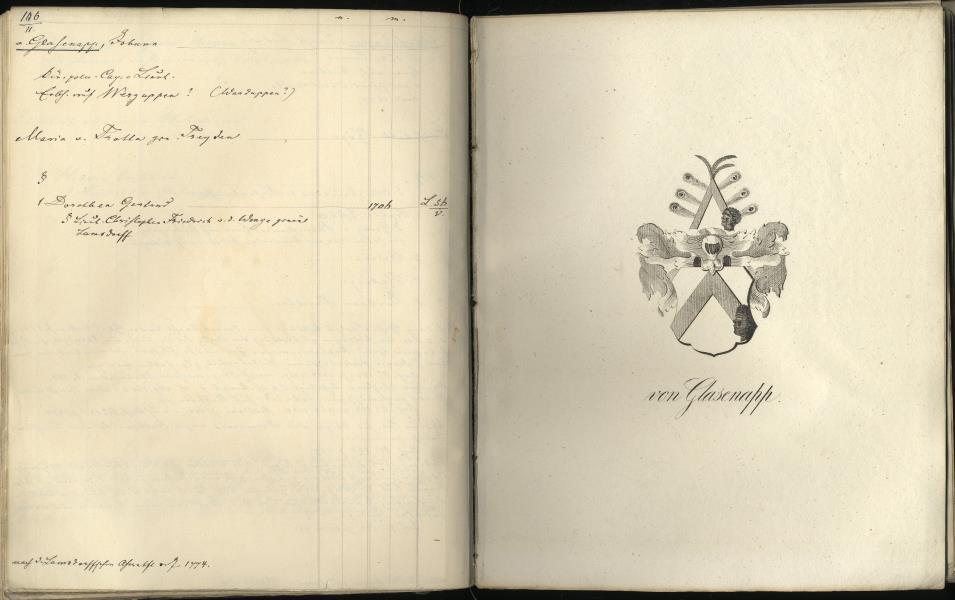 106
II.
n. m.
v. Glasenapp, Johann
Kön. poln. Cap. Lieut.
Erbh. auf Werguppen ? (Warduppen?)
Maria v. Trotta gen. Treyden
1 Dorothea Gertrud 1706 L
Lieut. Christopher Friedrich v. d. Wenge genannt
Lamsdorff
nach d. Lamsdorffschen 1774.
von Glasenapp.